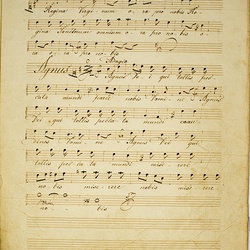 Regina Virgi num o ra pro nobis Re
gina Sanctorum omnium o ra pro no bis o
ra o ra pro no bis
Agnus Adagio Agnus De i qui tollis pec
cata mundi parce nobis Domi ne Agnus
De i qui tollis pecca ta mundi exau
di nos Domi ne Agnus Dei qui
tollis pec ca ta mundi mise rere
nobis mise rere nobis mise rere
no bis